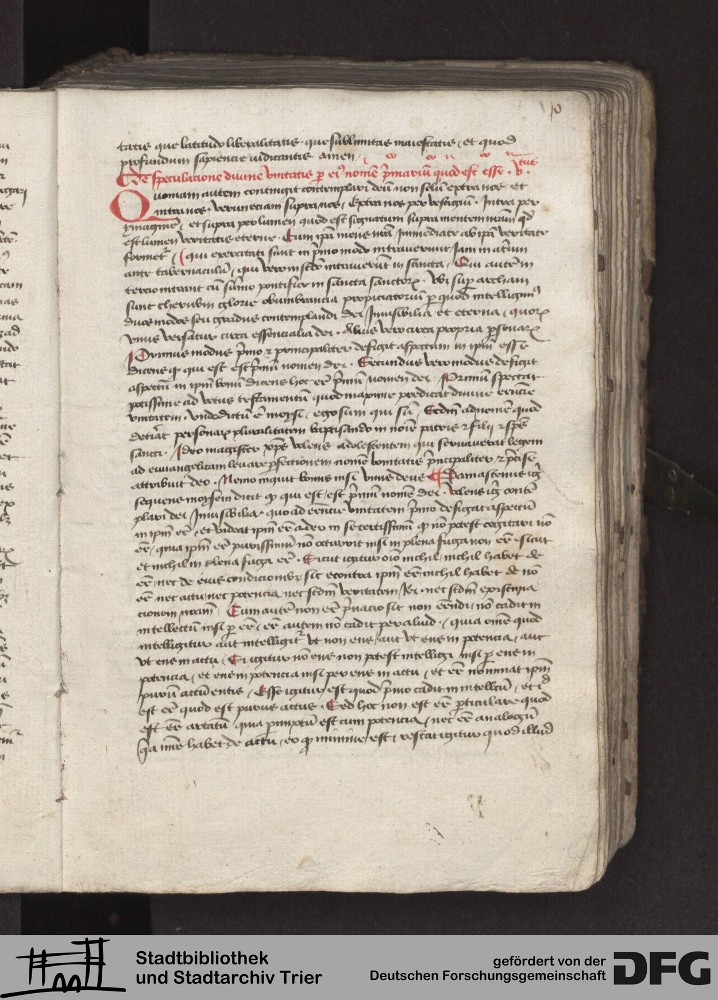 10
tatis que latitudo liberalitatis que sublimitas maiestatis et quod
profundum sapiencie iudicantis amen
De speculacione divine unitatis per eius nomen primarium quod est esse
Quoniam autem contingit contemplari deum non solum extra nos et
intra nos verum etiam supra nos extra nos per vestigium Intra per
ymaginem et supra per lumen quod est signatum supra mentem nostram quod
est lumen veritatis eterne Cum ipsa mens nostra immediate ab ipsa veritate
formetur qui exercitati sunt in primo modo intraverunt iam in atrium
ante tabernaculum qui vero in secundo intraverunt in sancta Qui autem in
tercio intrant cum summo pontifice in sancta sanctorum Ubi super archam
sunt cherubin glorie obumbrancia propiciatorium per quod intelligimus
duos modos seu gradus contemplandi dei Invisibilia et eterna quorum
unus versatur circa essencialia dei Alius vero circa propria personarum
Primus modus primo et principaliter defigit aspectum in ipsum esse
dicens quod qui est est primum nomen dei Secundus vero modus defigit
aspectum in ipsum bonum dicens hoc esse primum nomen dei Primum spectat
potissime ad vetus testamentum quod maxime predicat divine essencie
unitatem unde dictum est moysi ego sum qui sum Secundum ad novum quod
determinat personarum pluralitatem baptisando in nomine patris et filii et spiritus
sancti Ideo magister christus volens adolescentem qui servaverat legem
ad evangelicam levare perfectionem nomen bonitatis principaliter et precise
attribuit deo Nemo inquit bonus nisi unus deus Damascenus igitur
sequens moysem dicit quod qui est est primum nomen dei Volens igitur contem
plari dei Invisibilia quo ad essencie unitatem primo defigat aspectum
in ipsum esse et videat ipsum esse adeo in se certissimum quod non potest cogitari non
esse quia ipsum esse purissimum non occurrit nisi in plena fuga non esse sicut
et nichil in plena fuga esse Sicut igitur omnino nichil nichil habet de
esse nec de eius condicionibus sic econtra ipsum esse nichil habet de non
esse nec actu nec potencia nec secundum veritatem rei nec secundum existima
cionem nostram Cum autem non esse privacio sit non essendi non cadit in
intellectum nisi per esse esse autem non cadit per aliud quia omne quod
intelligitur aut intelligitur ut non ens aut ut ens in potencia aut
ut ens in actu Si igitur non ens non potest intelligi nisi per ens in
potencia et ens in potencia nisi per ens in actu et esse nominat ipsum
purum actum entis Esse igitur est quod primo cadit in intellectu et illud
est esse quod est purus actus Sed hoc non est esse particulare quod
est esse artatum quia permixtum est cum potencia nec esse analogum
quia minime habet de actu eo quod minime est restat igitur quod illud
Stadtbibliothek
und Stadtarchiv Trier
gefördert von der
Deutschen Forschungsgemeinschaft
DFG